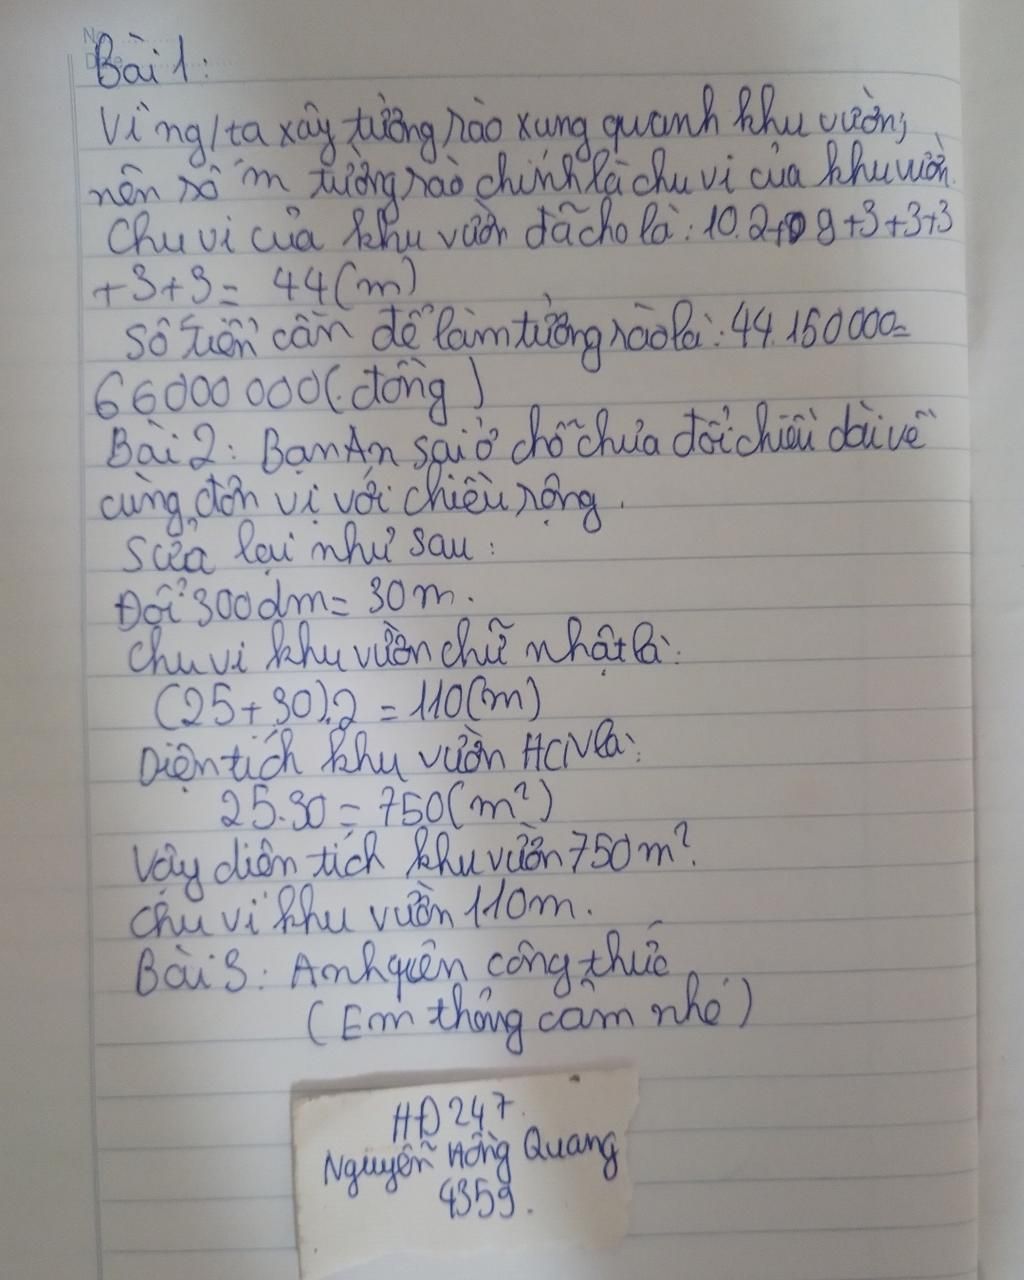 No.
Date
Bài 1:
Vì ng/ta xây tường rào xung quanh khu vườn,
nên số m tường rào chính là chu vi của khu vườn.
Chu vi của khu vườn đã cho là: 10.2+ 9+3+3+3
+3+3= 44(m)
Số tiền cần để làm tường rào là: 44.150000=
6600000(đồng)
Bài 2: Bạn An sai ở chỗ chưa đổi chiều dài về
cùng đơn vị với chiều rộng.
Sửa lại như sau:
Đổi 300dm= 30m.
Chu vi khu vườn chữ nhật là:
(25+30).2 = 110(m)
Diện tích khu vườn HCN là:
25.30= 750(m²)
Vậy diện tích khu vườn 750m².
Chu vi khu vườn 110m.
Bài 3: Anh quên công thức
(Em thông cảm nhé)
HĐ247.
Nguyễn Hồng Quang
4359.